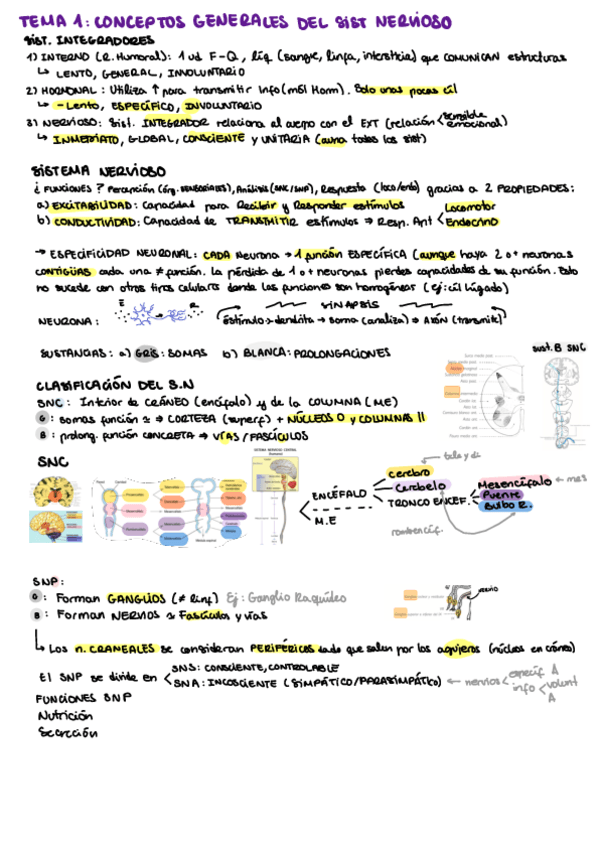 TEMA 1: CONCEPTOS GENERALES DEL SIST NERVIOSO
SIST. INTEGRADORES
1) INTERNO (R. Humoral): 1 ud F-Q, líq. (sangre, linfa, intersticial) que COMUNICAN estructuras
↳ LENTO, GENERAL, INVOLUNTARIO
2) HORMONAL: Utiliza ↑ para transmitir Info (msl Horm). Solo unas pocas cél
↳ - Lento, ESPECÍFICO, INVOLUNTARIO
3) NERVIOSO: Sist. INTEGRADOR relaciona al cuerpo con el EXT (relación < sensible emocional)
↳ INMEDIATO, GLOBAL, CONSCIENTE y UNITARIA (auna todos los sist)
SISTEMA NERVIOSO
¿FUNCIONES? Percepción (órg. SENSORIALES), Análisis (SNC/SNP), Respuesta (loco/endo) gracias a 2 PROPIEDADES:
a) EXCITABILIDAD: Capacidad para Recibir y Responder estímulos
b) CONDUCTIVIDAD: Capacidad de TRANSMITIR estímulos ⇒ Resp. Apt < Locomotor Endocrino
→ ESPECIFICIDAD NEURONAL: CADA Neurona → 1 función ESPECÍFICA (aunque haya 2 o + neuronas
CONTIGÜAS cada una ≠ función. La pérdida de 1 o + neuronas pierdes capacidades de su función. Esto
no sucede con otros tipos celulares donde las funciones son homogéneas (ej: cél hígado)
SINAPSIS
NEURONA: E R Estímulo → dendrita → soma (analiza) → Axón (transmite)
SUSTANCIAS: a) GRIS: SOMAS b) BLANCA: PROLONGACIONES
sust. B SNC
CLASIFICACIÓN DEL S.N
SNC: Interior de CRÁNEO (encéfalo) y de la COLUMNA (ME)
G: somas función ≈ ⇒ CORTEZA (superf) + NÚCLEOS O y COLUMNAS ||
B: prolong. función CONCRETA ⇒ VÍAS / FASCÍCULOS
SNC
SISTEMA NERVIOSO CENTRAL
ENCÉFALO
M.E
cerebro
Cerebelo
TRONCO ENCEF.
Mesencéfalo
Puente
Bulbo R.
SNP:
G: Forman GANGLIOS (≠ linf) Ej: Ganglio Raquídeo
B: Forman NERVIOS ≈ Fascículos y vías
NERVIO
↳ Los n. CRANEALES se consideran PERIFÉRICOS dado que salen por los agujeros (núcleos en cráneo)
El SNP se divide en < SNS: CONSCIENTE, CONTROLABLE
SNA: INCOSCIENTE (SIMPÁTICO/PARASIMPÁTICO) ← nervios < especif. A
info < volunt
A
FUNCIONES SNP
Nutrición
Secreción